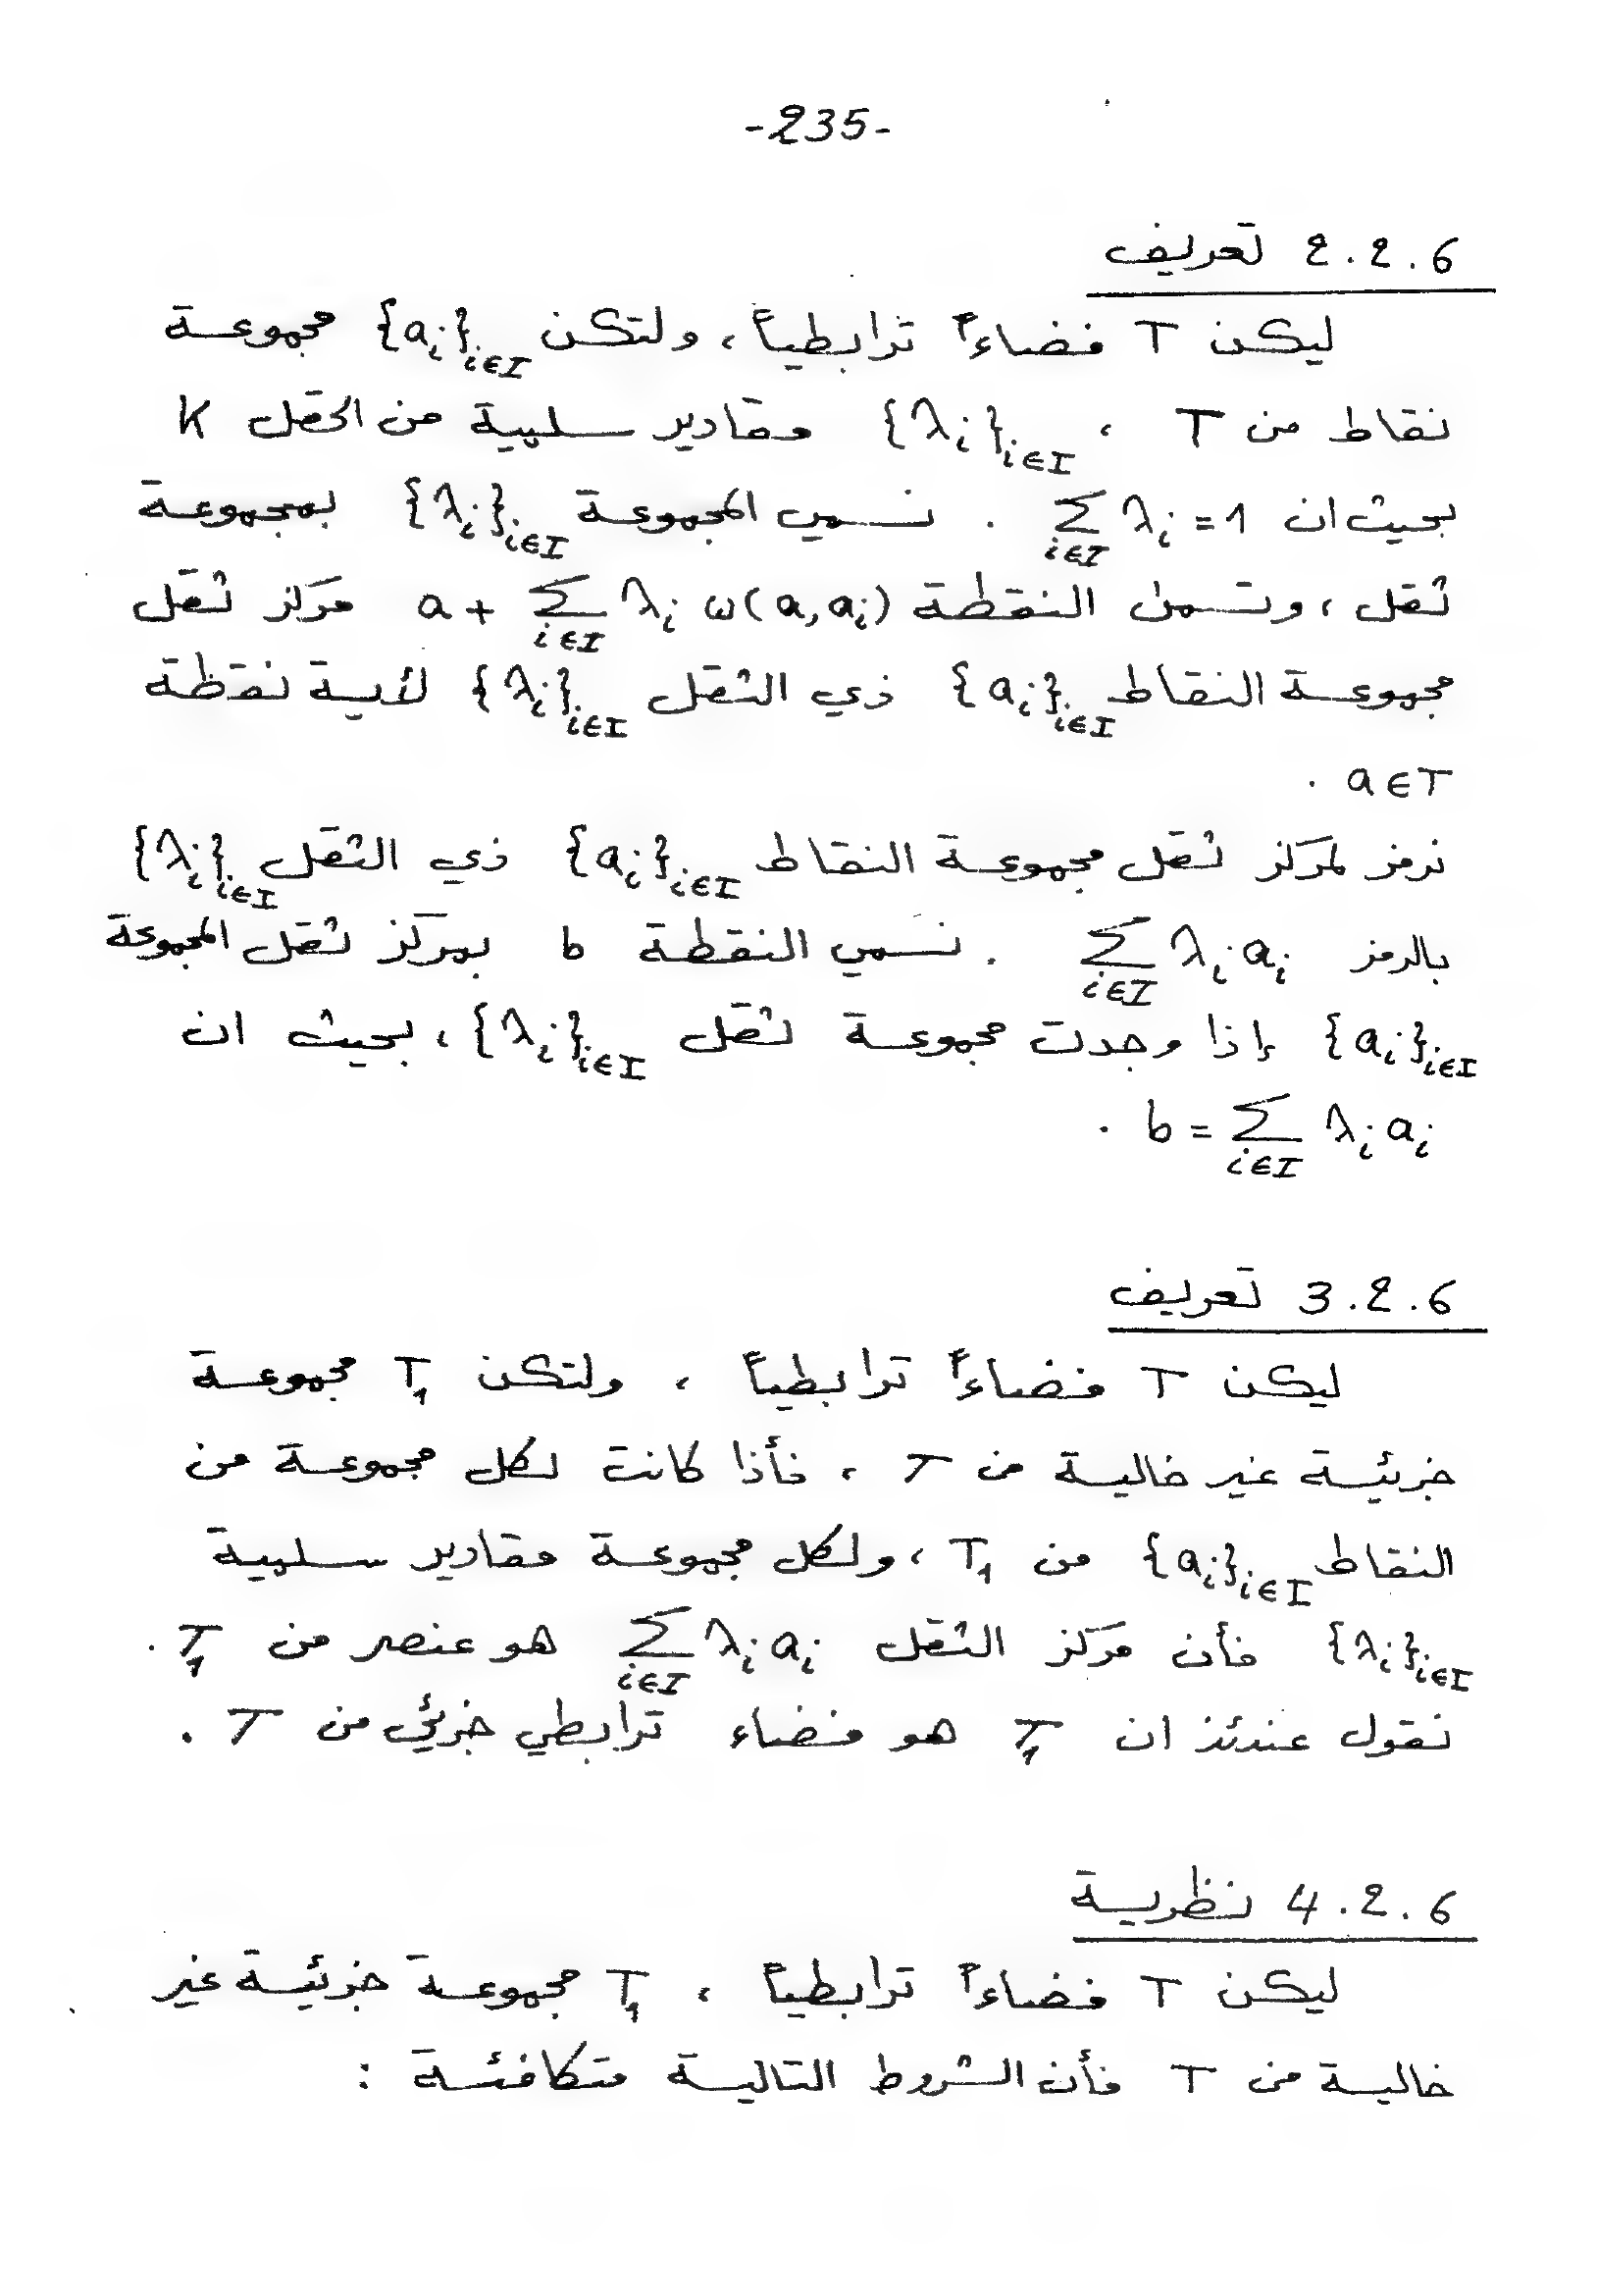 -235-
6.2.2 تعريف
ليكن T فضاءاً ترابطياً، ولتكن {aᵢ}ᵢ∈I مجموعة
نقاط من T ، {λᵢ}ᵢ∈I مقادير سلمية من الحقل K
بحيث ان ∑ᵢ∈I λᵢ = 1 . نسمي المجموعة {λᵢ}ᵢ∈I بمجموعة
ثقل، وتسمى النقطة a + ∑ᵢ∈I λᵢ ω(a, aᵢ) مركز ثقل
مجموعة النقاط {aᵢ}ᵢ∈I ذي الثقل {λᵢ}ᵢ∈I لأية نقطة
a∈T .
نرمز لمركز ثقل مجموعة النقاط {aᵢ}ᵢ∈I ذي الثقل {λᵢ}ᵢ∈I
بالرمز ∑ᵢ∈I λᵢ aᵢ . نسمي النقطة b بمركز ثقل المجموعة
{aᵢ}ᵢ∈I إذا وجدت مجموعة ثقل {λᵢ}ᵢ∈I ، بحيث ان
b = ∑ᵢ∈I λᵢ aᵢ .
6.2.3 تعريف
ليكن T فضاءاً ترابطياً ، ولتكن T₁ مجموعة
جزئية غير خالية من T ، فأذا كانت لكل مجموعة من
النقاط {aᵢ}ᵢ∈I من T₁ ، ولكل مجموعة مقادير سلمية
{λᵢ}ᵢ∈I فأن مركز الثقل ∑ᵢ∈I λᵢ aᵢ هو عنصر من T₁ .
نقول عندئذ ان T₁ هو فضاء ترابطي جزئي من T .
6.2.4 نظرية
ليكن T فضاءاً ترابطياً ، T₁ مجموعة جزئية غير
خالية من T فأن الشروط التالية متكافئة :